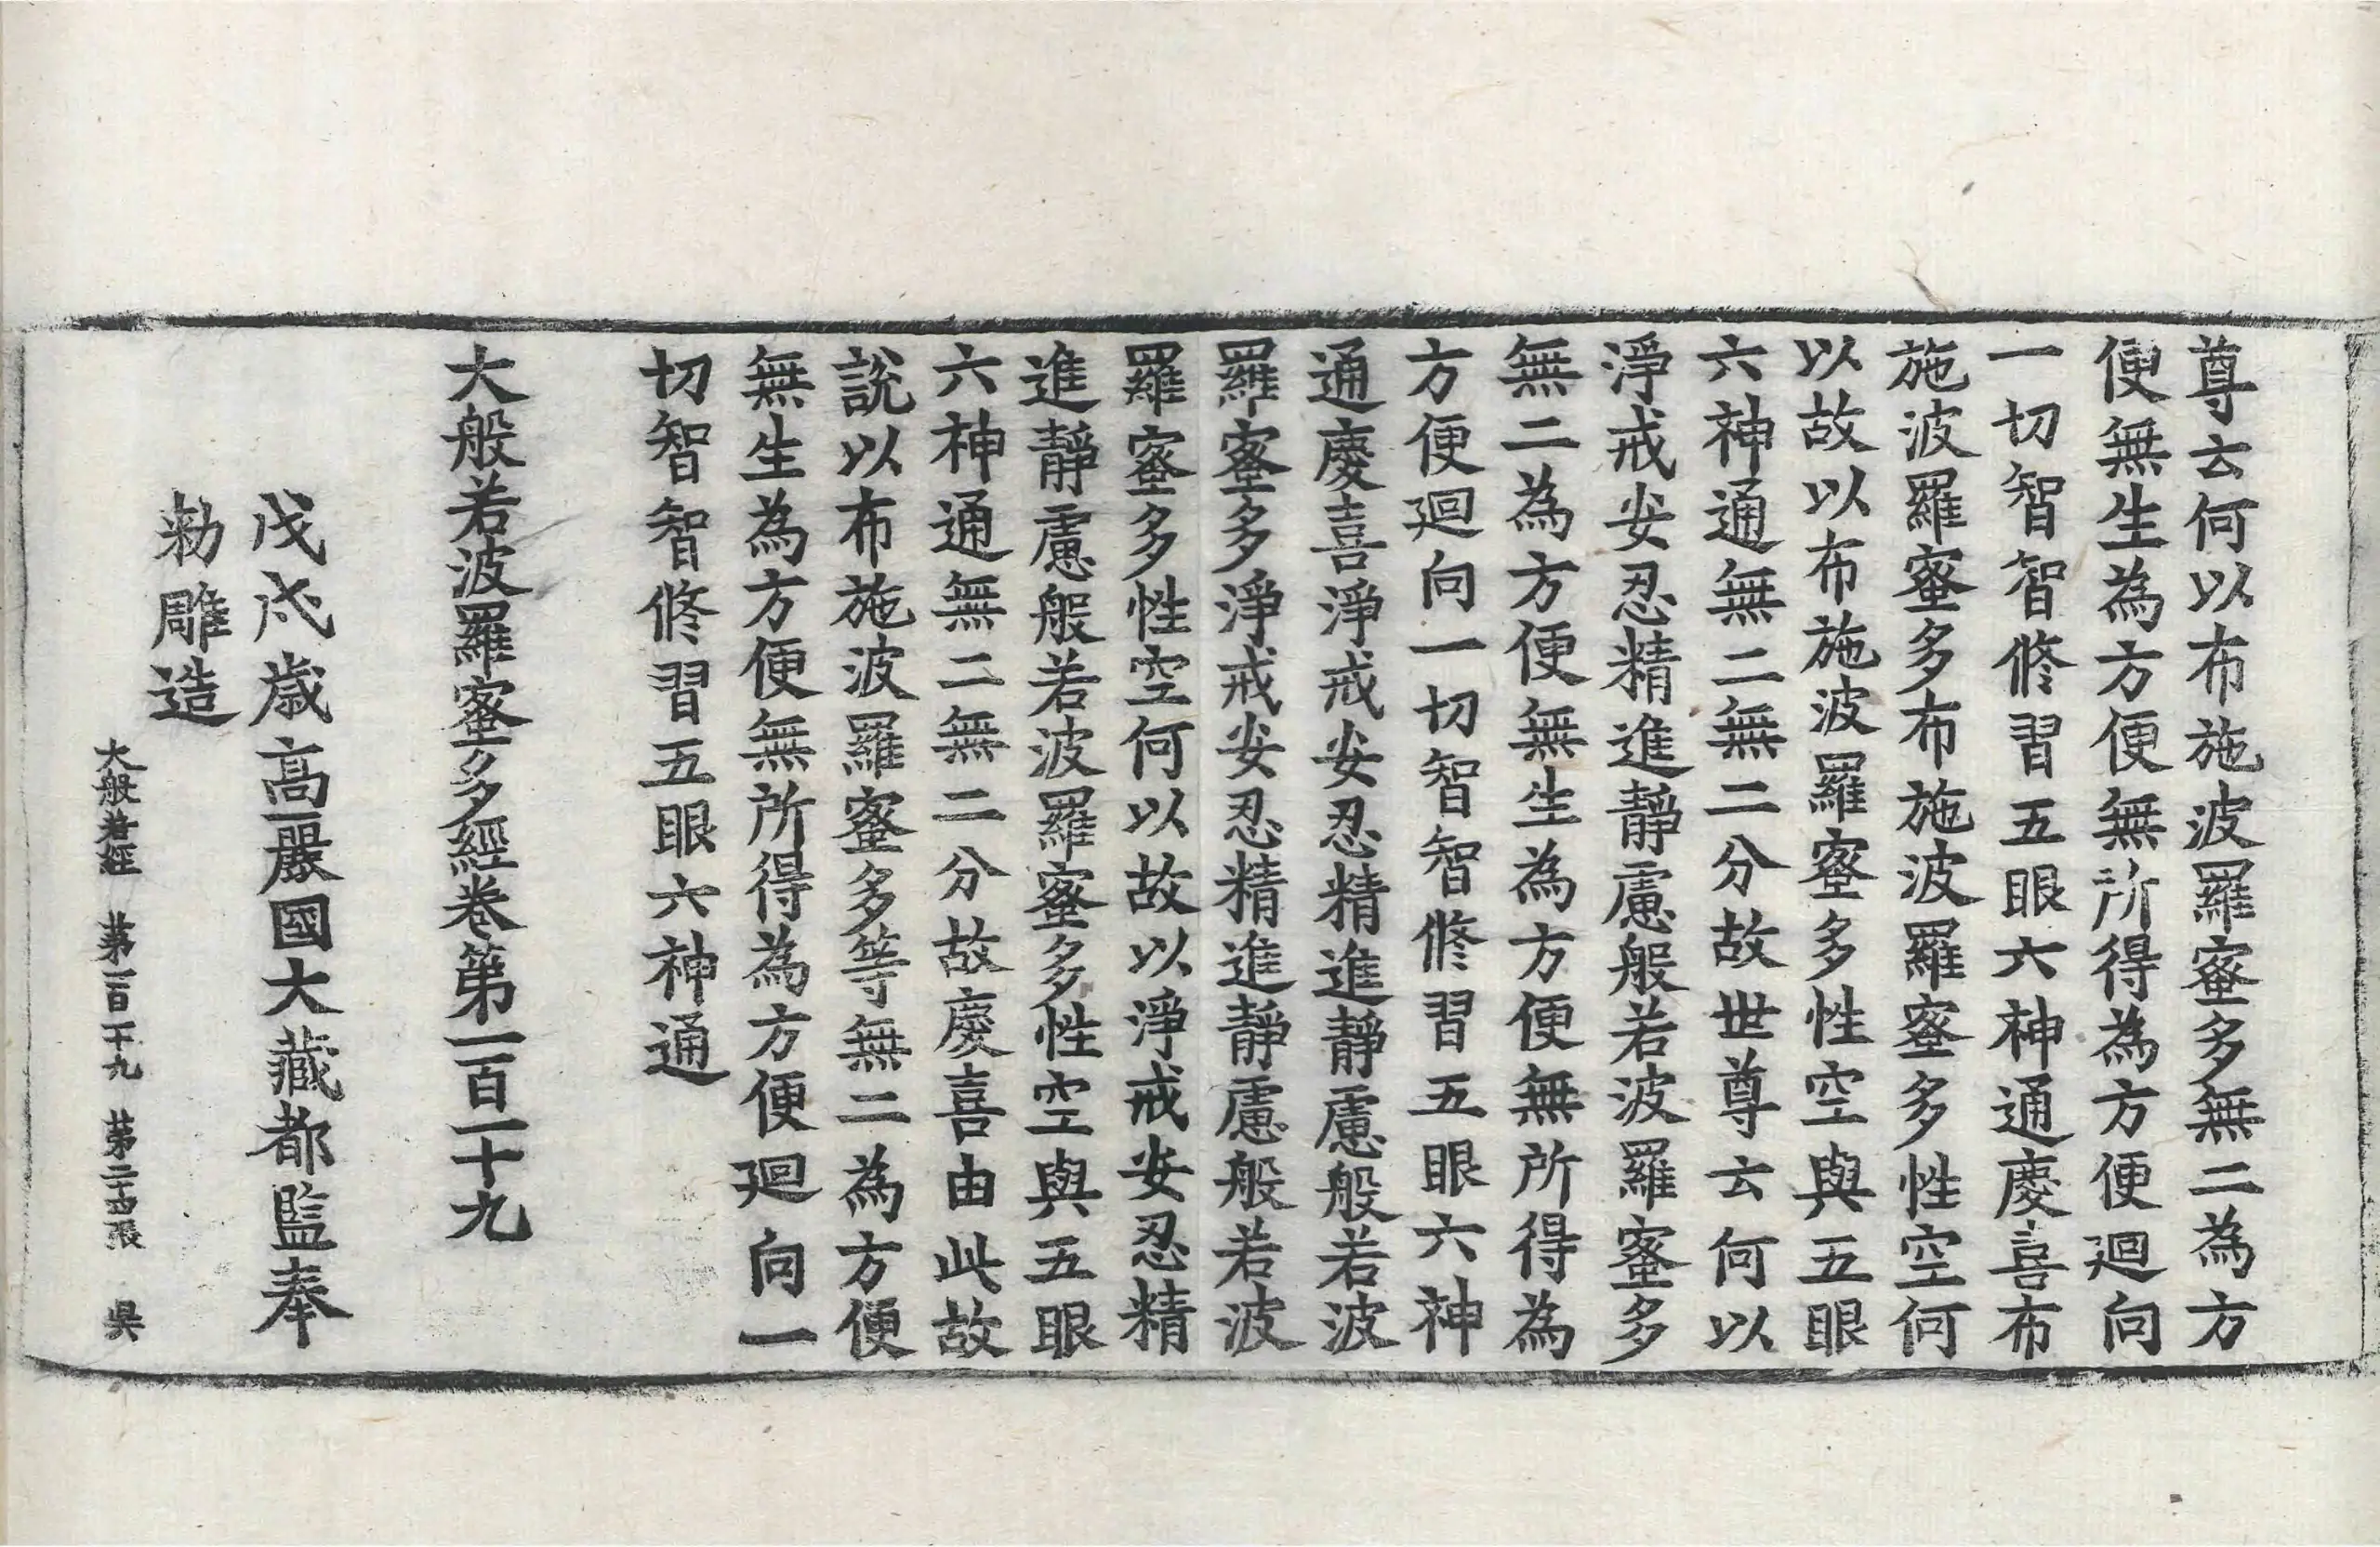 尊云何以布施波羅蜜多無二為方
便無生為方便無所得為方便迴向
一切智智修習五眼六神通慶喜布
施波羅蜜多布施波羅蜜多性空何
以故以布施波羅蜜多性空與五眼
六神通無二無二分故世尊云何以
淨戒安忍精進靜慮般若波羅蜜多
無二為方便無生為方便無所得為
方便迴向一切智智修習五眼六神
通慶喜淨戒安忍精進靜慮般若波
羅蜜多淨戒安忍精進靜慮般若波
羅蜜多性空何以故以淨戒安忍精
進靜慮般若波羅蜜多性空與五眼
六神通無二無二分故慶喜由此故
說以布施波羅蜜多等無二為方便
無生為方便無所得為方便迴向一
切智智修習五眼六神通
大般若波羅蜜多經卷第一百一十九
戊戌歲高麗國大藏都監奉
勅雕造
大般若經 第一百十九 第二十四張 吳